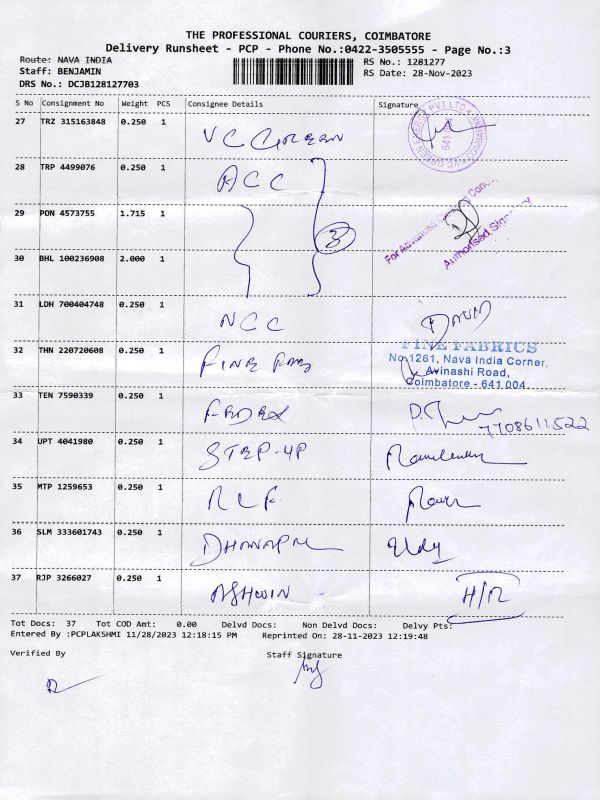 THE PROFESSIONAL COURIERS, COIMBATORE
Delivery Runsheet - PCP - Phone No.:0422-3505555 - Page No.:3
Route: NAVA INDIA RS No.: 1281277
Staff: BENJAMIN RS Date: 28-Nov-2023
DRS No.: DCJB128127703
S No Consignment No Weight PCS Consignee Details Signature
27 TRZ 315163848 0.250 1 VC GREEN
28 TRP 4499076 0.250 1 ACC
29 PON 4573755 1.715 1
3
For Advanced
Authorised Signatory
30 BHL 100236908 2.000 1
31 LDH 700404748 0.250 1 NCC
32 THN 220720608 0.250 1 FINE FAB
FINE FABRICS
No.1261, Nava India Corner,
Avinashi Road,
Coimbatore - 641 004.
33 TEN 7590339 0.250 1 FEDEX
7708611522
34 UPT 4041980 0.250 1 STEP-UP
35 MTP 1259653 0.250 1
36 SLM 333601743 0.250 1 DHANAPAL
37 RJP 3266027 0.250 1 ASHWIN H/R
Tot Docs: 37 Tot COD Amt: 0.00 Delvd Docs: Non Delvd Docs: Delvy Pts:
Entered By :PCPLAKSHMI 11/28/2023 12:18:15 PM Reprinted On: 28-11-2023 12:19:48
Verified By Staff Signature